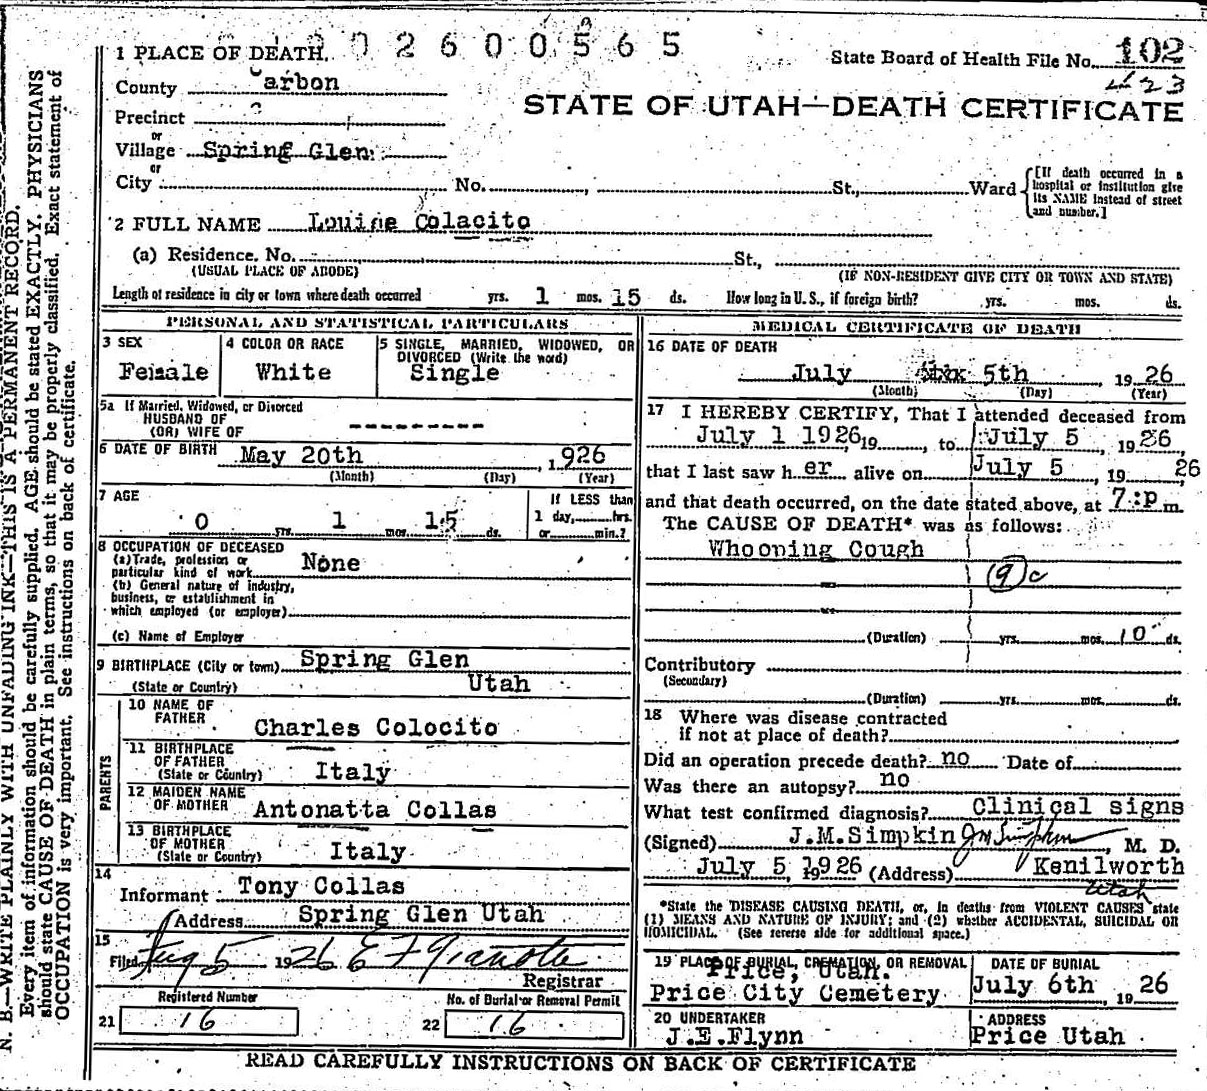 2600565
1 PLACE OF DEATH
State Board of Health File No. 102
423
County Carbon
STATE OF UTAH—DEATH CERTIFICATE
Precinct
or
Village Spring Glen
or
City No. , St., Ward
[If death occurred in a hospital or institution give its NAME instead of street and number.]
2 FULL NAME Louine Colacito
(a) Residence. No. St.,
(USUAL PLACE OF ABODE) (IF NON-RESIDENT GIVE CITY OR TOWN AND STATE)
Length of residence in city or town where death occurred yrs. 1 mos. 15 ds. How long in U. S., if foreign birth? yrs. mos. ds.
PERSONAL AND STATISTICAL PARTICULARS
3 SEX
Female
4 COLOR OR RACE
White
5 SINGLE, MARRIED, WIDOWED, OR
DIVORCED (Write the word)
Single
5a If Married, Widowed, or Divorced
HUSBAND OF
(OR) WIFE OF ---------
6 DATE OF BIRTH May 20th , 1926
(Month) (Day) (Year)
7 AGE
0 yrs. 1 mos. 15 ds.
If LESS than
1 day, hrs.
or min.?
8 OCCUPATION OF DECEASED
(a) Trade, profession or
particular kind of work None
(b) General nature of industry,
business, or establishment in
which employed (or employer)
(c) Name of Employer
9 BIRTHPLACE (City or town) Spring Glen
(State or Country) Utah
PARENTS
10 NAME OF
FATHER Charles Colocito
11 BIRTHPLACE
OF FATHER
(State or Country) Italy
12 MAIDEN NAME
OF MOTHER Antonatta Collas
13 BIRTHPLACE
OF MOTHER
(State or Country) Italy
14
Informant Tony Collas
Address Spring Glen Utah
15
Filed Aug 5 1926 E F Gianotti
Registrar
Registered Number
21 16
No. of Burial or Removal Permit
22 16
MEDICAL CERTIFICATE OF DEATH
16 DATE OF DEATH
July 5th , 1926
(Month) (Day) (Year)
17 I HEREBY CERTIFY, That I attended deceased from
July 1 1926, 19 , to July 5 , 1926
that I last saw her alive on July 5 , 19 26
and that death occurred, on the date stated above, at 7:p m.
The CAUSE OF DEATH* was as follows:
Whooping Cough
(9)c
(Duration) yrs. mos. 10 ds.
Contributory
(Secondary)
(Duration) yrs. mos. ds.
18 Where was disease contracted
if not at place of death?
Did an operation precede death? no Date of
Was there an autopsy? no
What test confirmed diagnosis? Clinical signs
(Signed) J.M.Simpkin J M Simpkin, M. D.
July 5, 1926 (Address) Kenilworth
Utah
*State the DISEASE CAUSING DEATH, or, in deaths from VIOLENT CAUSES state
(1) MEANS AND NATURE OF INJURY; and (2) whether ACCIDENTAL, SUICIDAL OR
HOMICIDAL. (See reverse side for additional space.)
19 PLACE OF BURIAL, CREMATION, OR REMOVAL
Price, Utah.
Price City Cemetery
DATE OF BURIAL
July 6th , 19 26
20 UNDERTAKER
J.E.Flynn
ADDRESS
Price Utah
READ CAREFULLY INSTRUCTIONS ON BACK OF CERTIFICATE
N. B.—WRITE PLAINLY WITH UNFADING INK—THIS IS A PERMANENT RECORD.
Every item of information should be carefully supplied. AGE should be stated EXACTLY. PHYSICIANS
should state CAUSE OF DEATH in plain terms, so that it may be properly classified. Exact statement of
OCCUPATION is very important. See instructions on back of certificate.